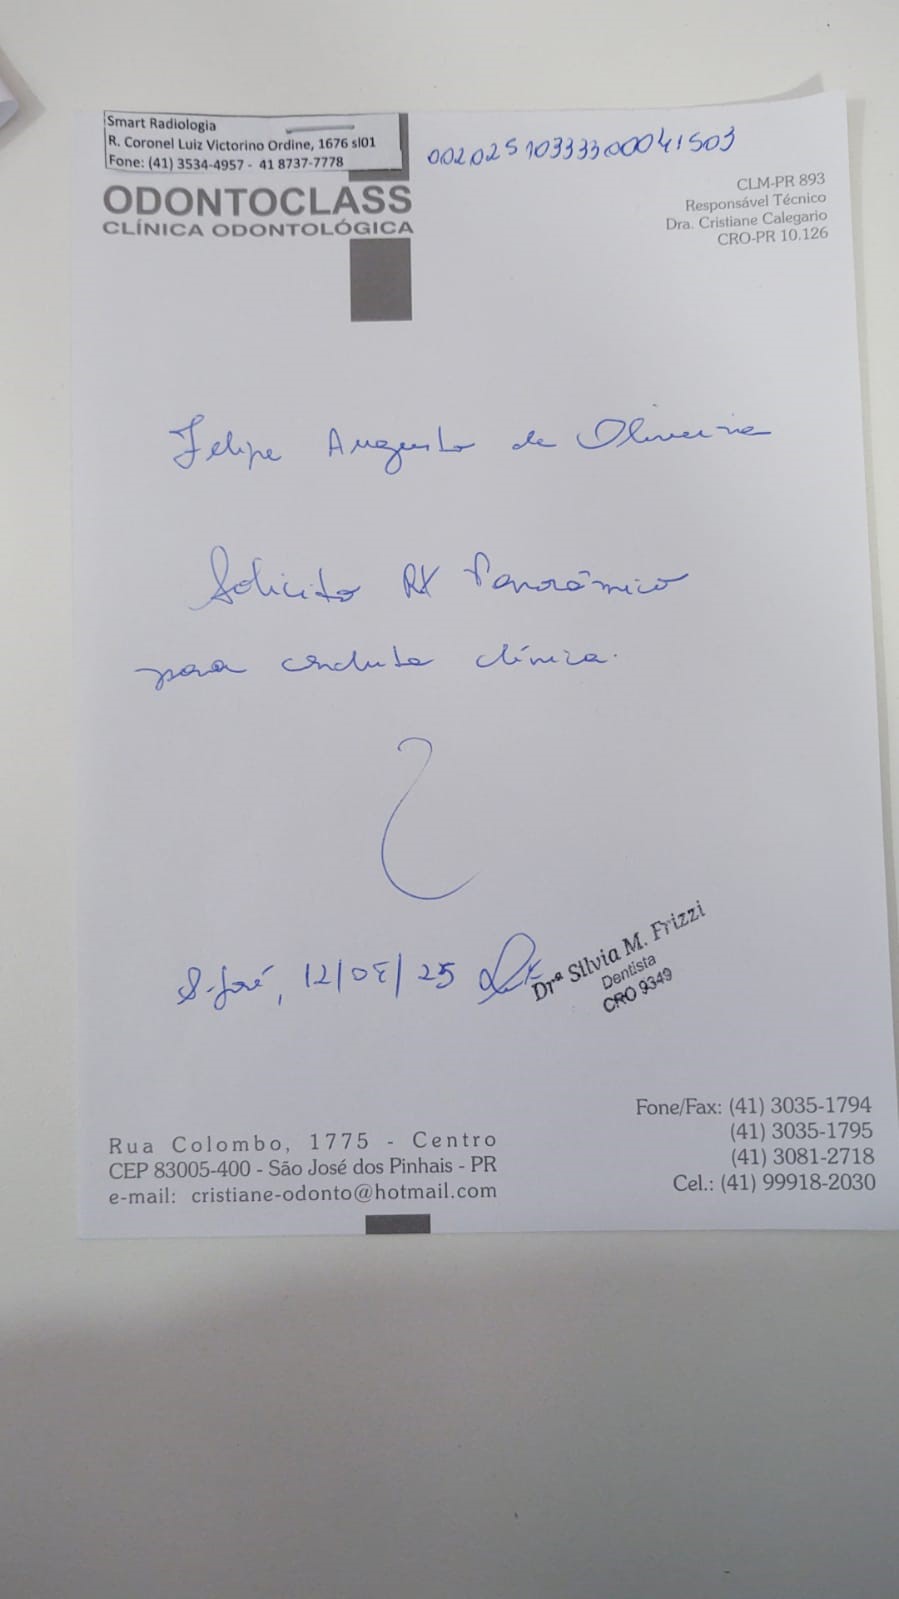 Smart Radiologia
R. Coronel Luiz Victorino Ordine, 1676 sl01
Fone: (41) 3534-4957 - 41 8737-7778
00202510333300041503
ODONTOCLASS
CLÍNICA ODONTOLÓGICA
CLM-PR 893
Responsável Técnico
Dra. Cristiane Calegario
CRO-PR 10.126
Felipe Augusto de Oliveira
Solicito RX Panorâmico
para conduta clínica.
S. José, 12/08/25
Drª Silvia M. Frizzi
Dentista
CRO 9349
Rua Colombo, 1775 - Centro
CEP 83005-400 - São José dos Pinhais - PR
e-mail: cristiane-odonto@hotmail.com
Fone/Fax: (41) 3035-1794
(41) 3035-1795
(41) 3081-2718
Cel.: (41) 99918-2030